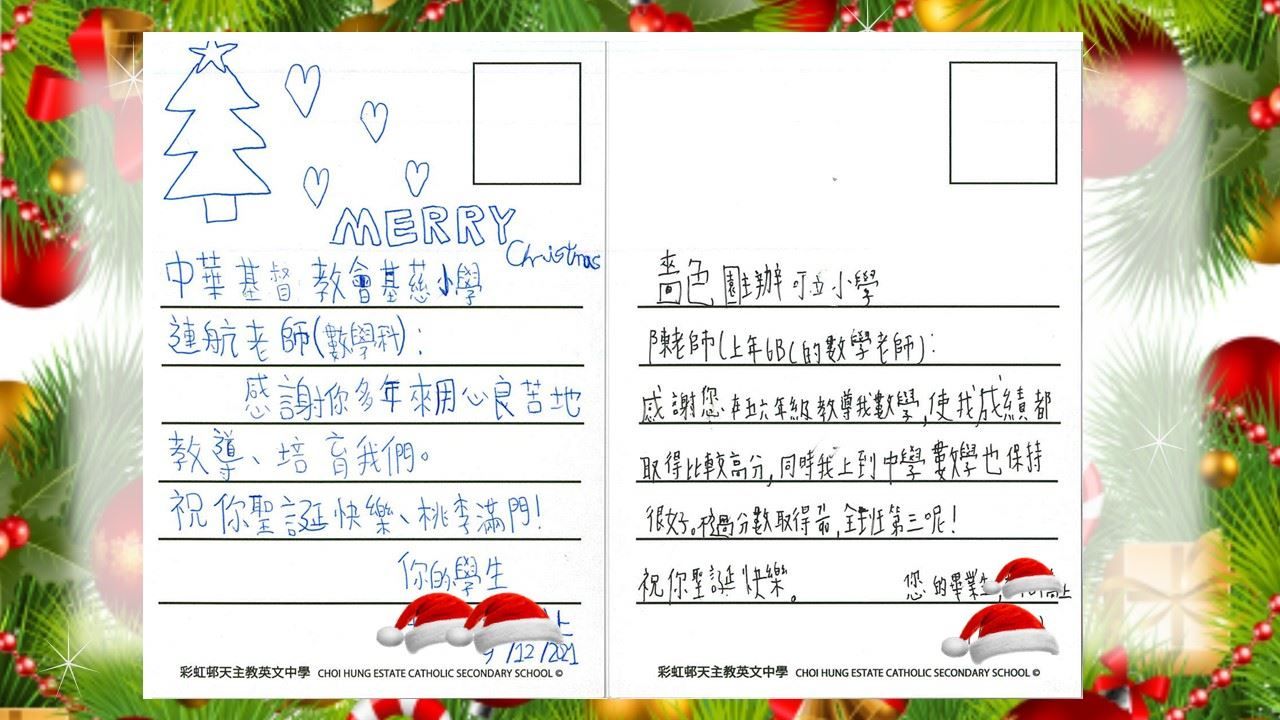 MERRY
Christmas
中華基督教會基慈小學
連航老師(數學科):
感謝你多年來用心良苦地
教導、培育我們。
祝你聖誕快樂、桃李滿門!
你的學生
上
/12/2021
彩虹邨天主教英文中學 CHOI HUNG ESTATE CATHOLIC SECONDARY SCHOOL ©
嗇色園主辦可立小學
陳老師(上年6B(的數學老師):
感謝您在五六年級教導我數學,使我成績都
取得比較高分,同時我上到中學數學也保持
很好。分數取得前,全班第三呢!
祝你聖誕快樂。
您的畢業生,上
彩虹邨天主教英文中學 CHOI HUNG ESTATE CATHOLIC SECONDARY SCHOOL ©